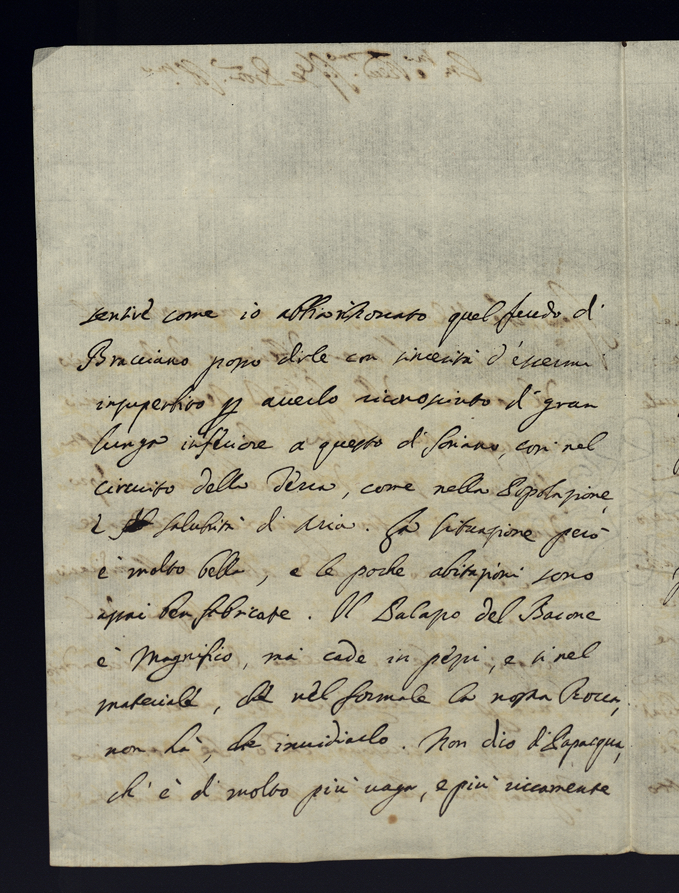 sentire come io abbia ritrovato quel feudo di
Bracciano posso dirle con sincerità d'essermi
insuperbito per averlo riconosciuto di gran
lunga inferiore a questo di Soriano, così nel
circuito della Terra, come nella Popolazione,
e salubrità di Aria. La situazione però
è molto bella, e le poche abitazioni sono
assai ben fabricate. Il Palazzo del Barone
è Magnifico, mà cade in pezzi, e sì nel
materiale, chè nel formale la nostra Rocca,
non hà, che invidiarlo. Non dico di Papacqua,
ch' è di molto più vaga, e più riccamente